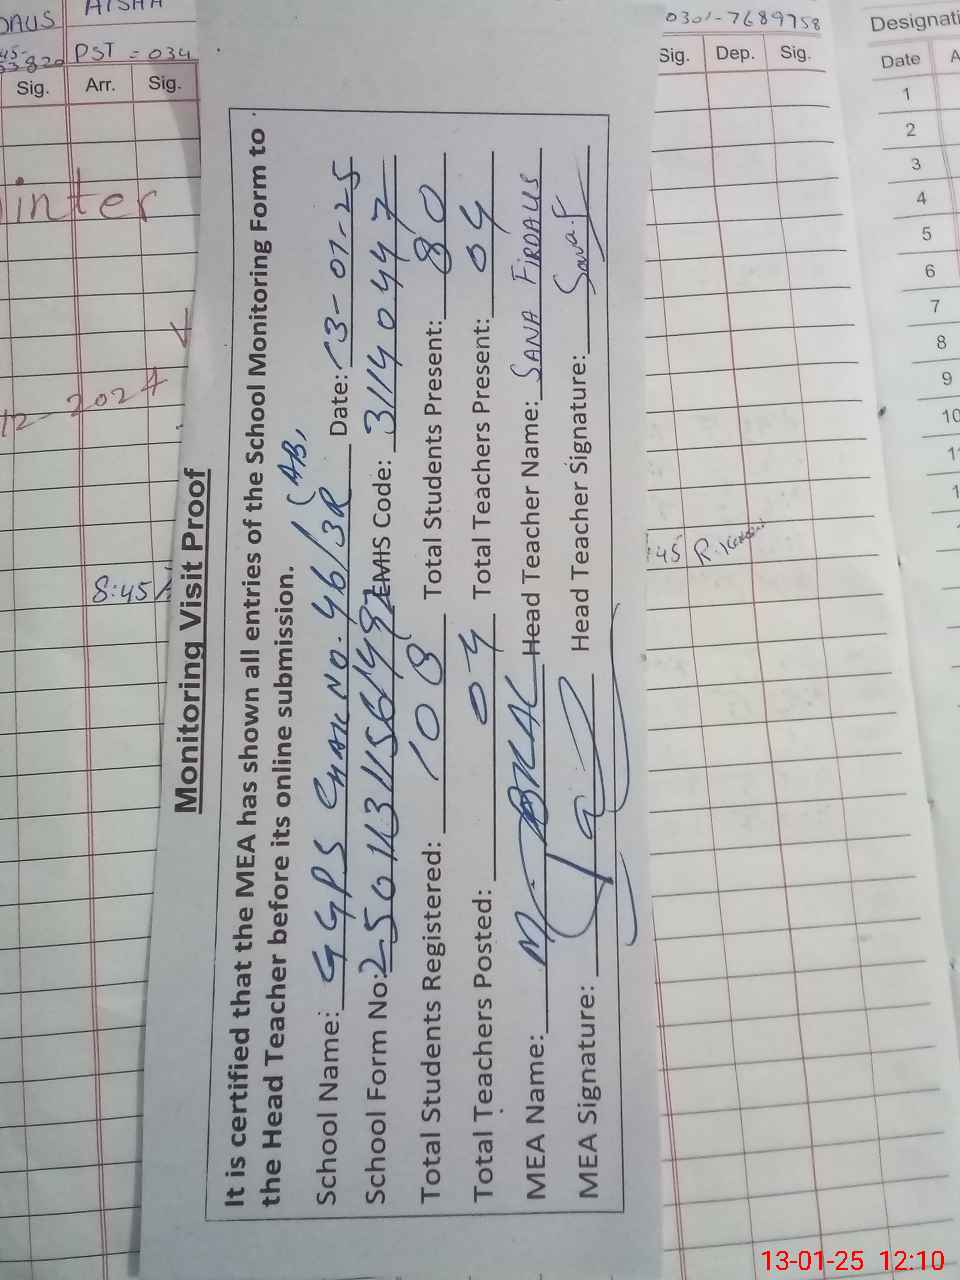 DAUS AISHA
PST = 034
Sig. Arr. Sig.
inter
12-2024
8:45
Monitoring Visit Proof
It is certified that the MEA has shown all entries of the School Monitoring Form to
the Head Teacher before its online submission.
School Name: GGPS CHAK NO. 46/3R (AB, Date: 13-01-25
School Form No: EMIS Code: 31140447
Total Students Registered: 108 Total Students Present: 80
Total Teachers Posted: 04 Total Teachers Present: 04
MEA Name: Head Teacher Name: SANA FIRDAUS
MEA Signature: Head Teacher Signature: Sana.f
0301-7689758
Sig. Dep. Sig.
:45 R.
Designati
Date A
1
2
3
4
5
6
7
8
9
10
13-01-25 12:10